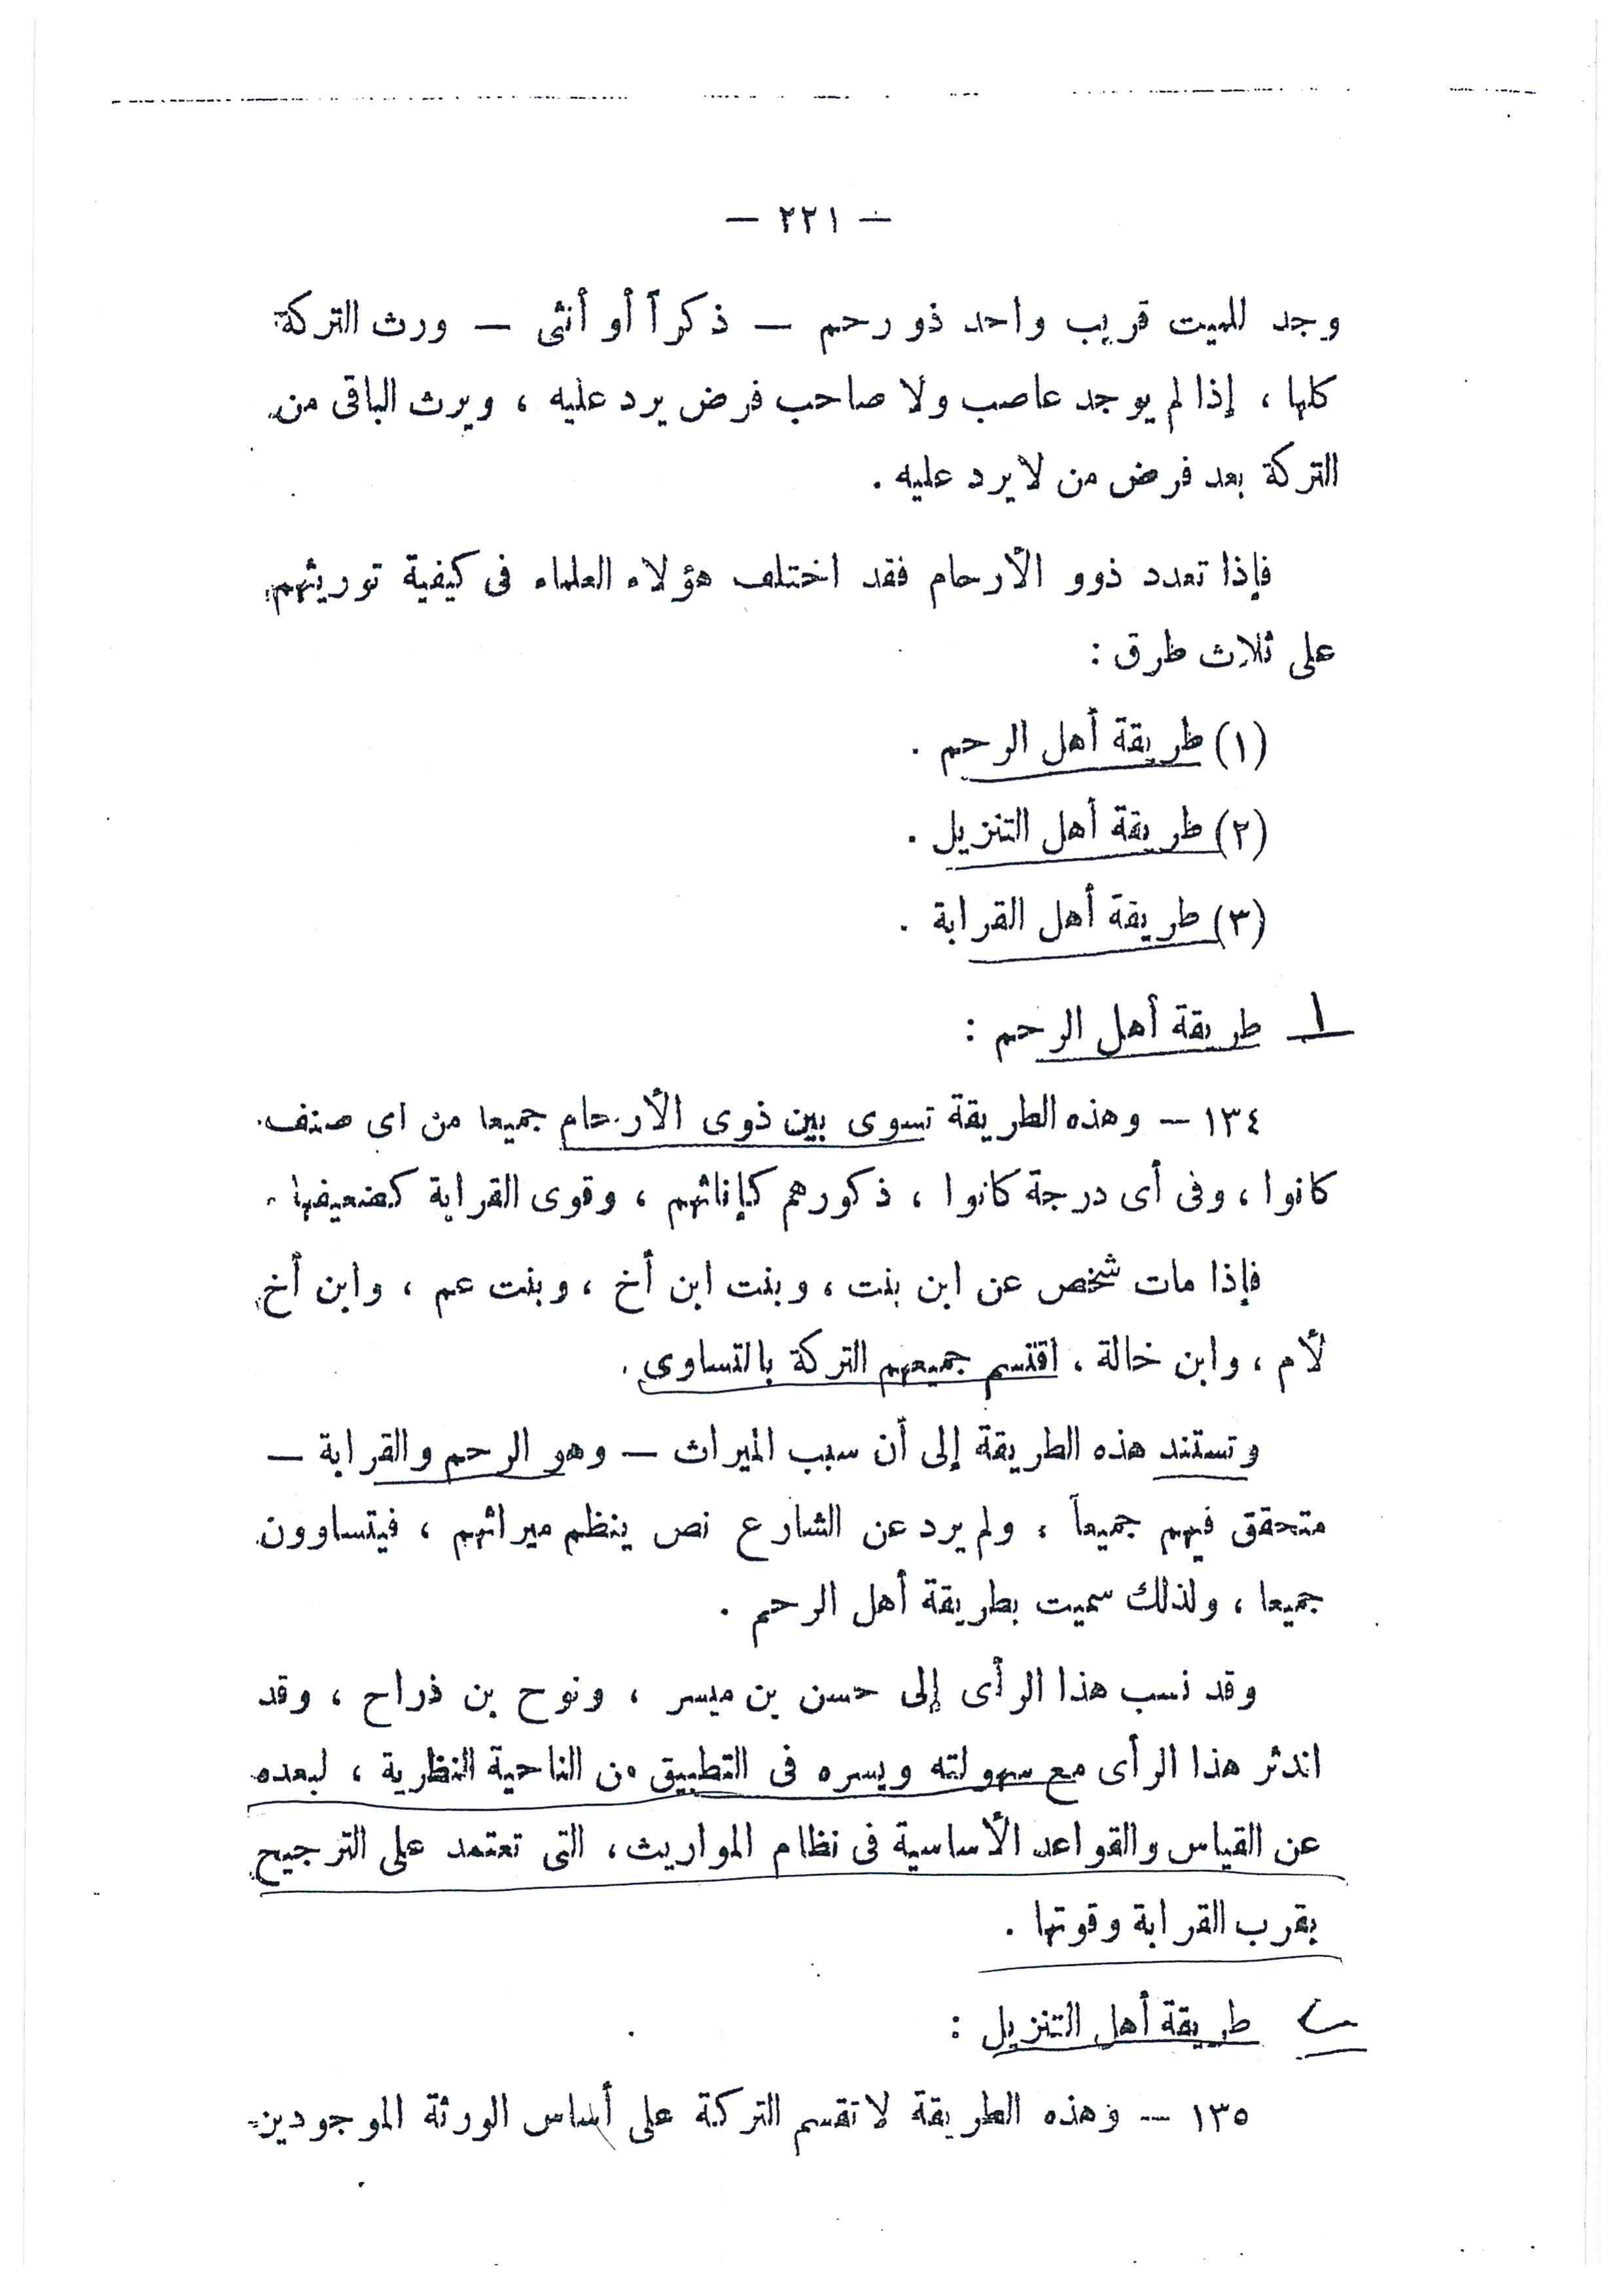 — ٢٢١ —
وجد للميت قريب واحد ذو رحم — ذكراً أو أنثى — ورث التركة
كلها ، إذا لم يوجد عاصب ولا صاحب فرض يرد عليه ، ويرث الباقى من
التركة بعد فرض من لا يرد عليه .
فإذا تعدد ذوو الأرحام فقد اختلف هؤلاء العلماء فى كيفية توريثهم
على ثلاث طرق :
(١) طريقة أهل الرحم .
(٢) طريقة أهل التنزيل .
(٣) طريقة أهل القرابة .
١ طريقة أهل الرحم :
١٣٤ — وهذه الطريقة تسوى بين ذوى الأرحام جميعا من اى صنف
كانوا ، وفى أى درجة كانوا ، ذكورهم كإناثهم ، وقوى القرابة كضعيفها .
فإذا مات شخص عن ابن بنت ، وبنت ابن أخ ، وبنت عم ، وابن أخ
لأم ، وابن خالة ، اقتسم جميعهم التركة بالتساوى .
وتستند هذه الطريقة إلى أن سبب الميراث — وهو الرحم والقرابة —
متحقق فيهم جميعاً ، ولم يرد عن الشارع نص ينظم ميراثهم ، فيتساوون
جميعا ، ولذلك سميت بطريقة أهل الرحم .
وقد نسب هذا الرأى إلى حسن بن ميسر ، ونوح بن ذراح ، وقد
اندثر هذا الرأى مع سهولته ويسره فى التطبيق من الناحية النظرية ، لبعده
عن القياس والقواعد الأساسية فى نظام المواريث ، التى تعتمد على الترجيح
بقرب القرابة وقوتها .
ب طريقة أهل التنزيل :
١٣٥ — وهذه الطريقة لا تقسم التركة على أساس الورثة الموجودين